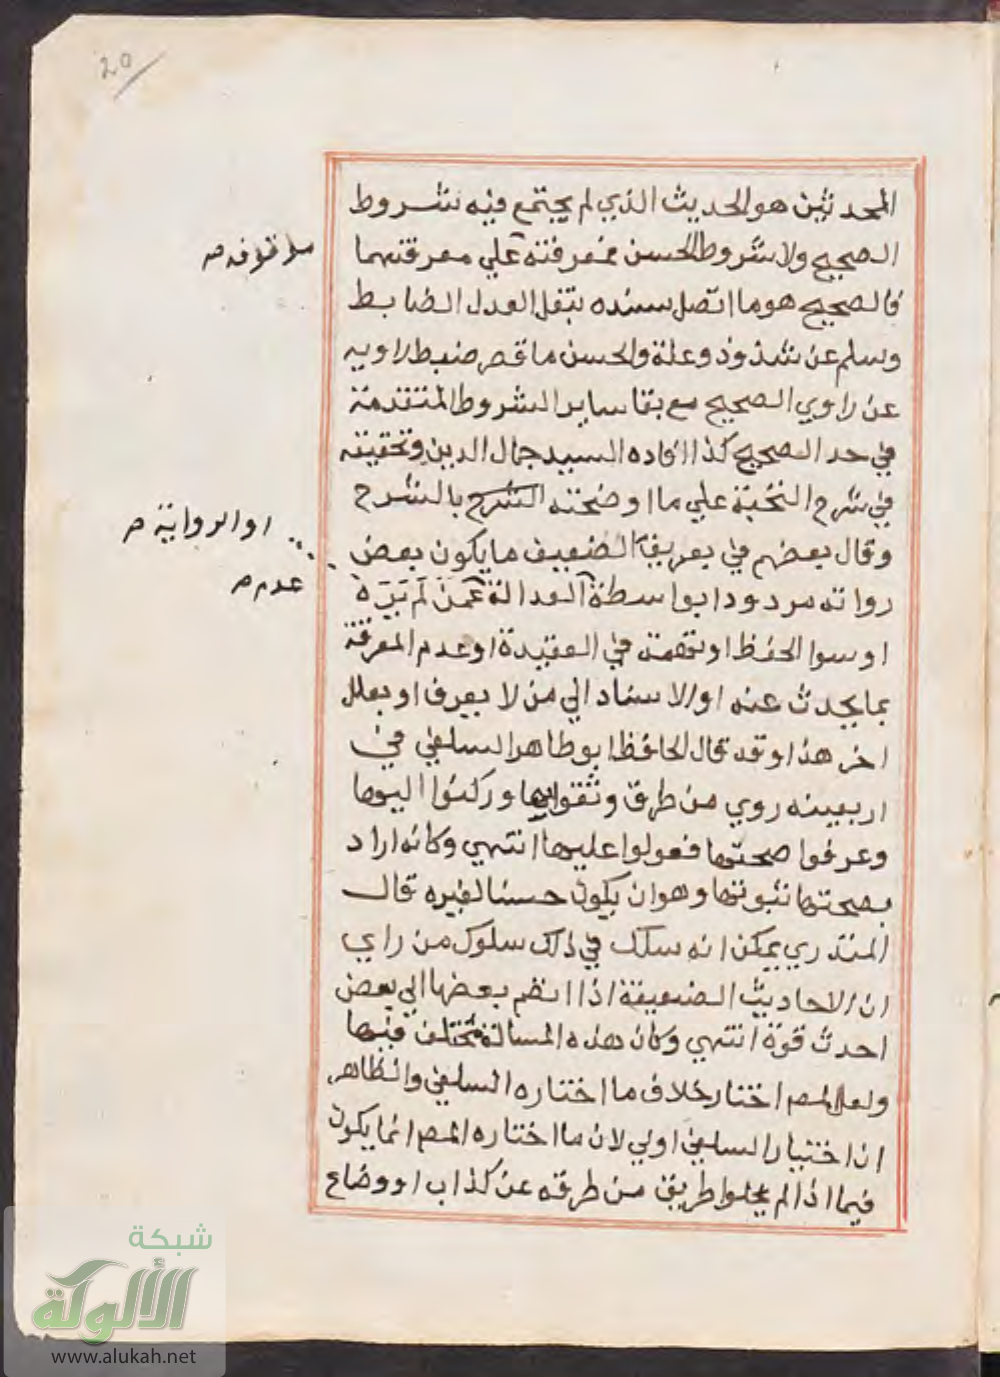 20
المحدثين هو الحديث الذي لم يجتمع فيه شروط
الصحيح ولا شروط الحسن فمعرفته علي معرفتهما
فالصحيح هو ما اتصل سنده بنقل العدل الضابط
وسلم عن شذوذ وعلة والحسن ما قصر ضبط راويه
عن راوي الصحيح مع بقا ساير الشروط المتقدمة
في حد الصحيح كذا افاده السيد جمال الدين وتحقيقه
في شرح النخبة علي ما اوضحته الشرح بالشرح
وقال بعضهم في تعريف الضعيف ما يكون بعض
رواته مردودا بواسطة العدالة عمن لم يره
او سوا الحفظ او تهمة في العقيدة او عدم المعرفة
بما يحدث عنه او الاسناد الي من لا يعرف او بعلل
اخر هذا وقد قال الحافظ ابو طاهر السلفي في
اربعينه روي من طرق وثقوا بها وركنوا اليها
وعرفوا صحتها فعولوا عليها انتهي وكانه اراد
بصحتها ثبوتها وهو ان يكون حسنا لغيره قال
المنذري يمكن انه سلك في ذلك سلوك من راي
ان الاحاديث الضعيفة اذا انظم بعضها الي بعض
احدث قوة انتهي وكان هذه المسالة مختلف فيها
ولعل المصم اختار خلاف ما اختاره السلفي والظاهر
ان اختيار السلفي اولي لان ما اختاره المصم انما يكون
فيما اذا لم يخلوا طريق من طرقه عن كذاب او وضاع
او الرواية صـ
عدم صـ
شبكة
الألوكة
www.alukah.net